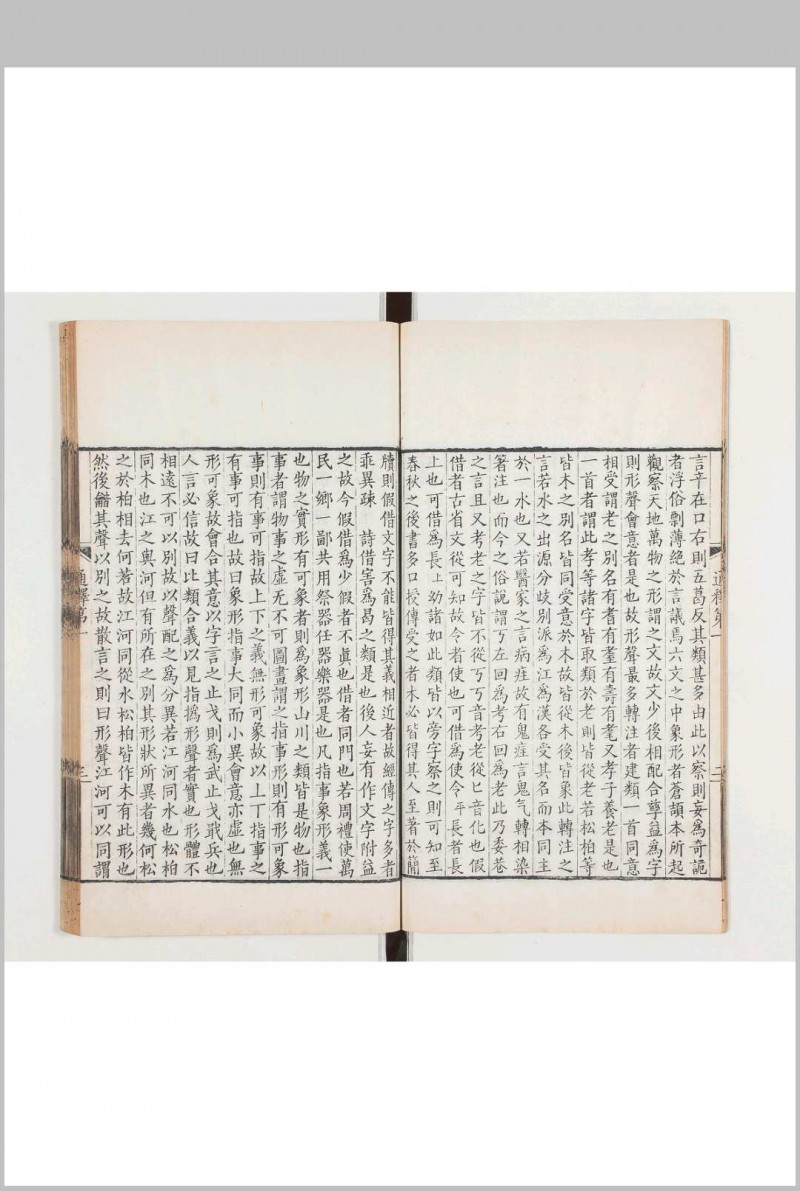 言辛在口右則五葛反其類甚多由此以察則妄爲奇詭
者浮俗剽薄絶於言議焉六文之中象形者蒼頡本所起
觀察天地萬物之形謂之文故文少後相配合孳益爲字
則形聲會意者是也故形聲最多轉注者建類一首同意
相受謂老之別名有耆有耋有壽有耄又孝子養老是也
一首者謂此孝等諸字皆取類於老則皆從老若松柏等
皆木之別名皆同受意於木故皆從木後皆象此轉注之
言若水之出源分歧別派爲江爲漢各受其名而本同主
於一水也又若醫家之言病疰故有鬼疰言鬼气轉相染
箸注也而今之俗説謂丂左回爲考右回爲老此乃委巷
之言且又考老之字皆不從丂丂音考老從匕音化也假
借者古省文從可知故令者使也可借爲使令平長者長
上也可借爲長上幼諸如此類皆以旁字察之則可知至
春秋之後書多口授傳受之者未必皆得其人至著於簡
牘則假借文字不能皆得其義相近者故經傳之字多者
乖異疎　詩借害爲曷之類是也後人妄有作文字附益
之故今假借爲少假者不眞也借者同門也若周禮使萬
民一鄉一鄙共用祭器任器樂器是也凡指事象形義一
也物之實形有可象者則爲象形山川之類皆是物也指
事者謂物事之虛无不可圖畫謂之指事形則有形可象
事則有事可指故上下之義無形可象故以上丅指事之
有事可指也故曰象形指事大同而小異會意亦虛也無
形可象故會合其意以字言之止戈則爲武止戈戢兵也
人言必信故曰比類合義以見指撝形聲者實也形體不
相遠不可以別故以聲配之爲分異若江河同水也松柏
同木也江之與河但有所在之別其形狀所異者幾何松
之於柏相去何若故江河同從水松柏皆作木有此形也
然後龤其聲以別之故散言之則曰形聲江河可以同謂
通釋第一
二
通釋第一
三